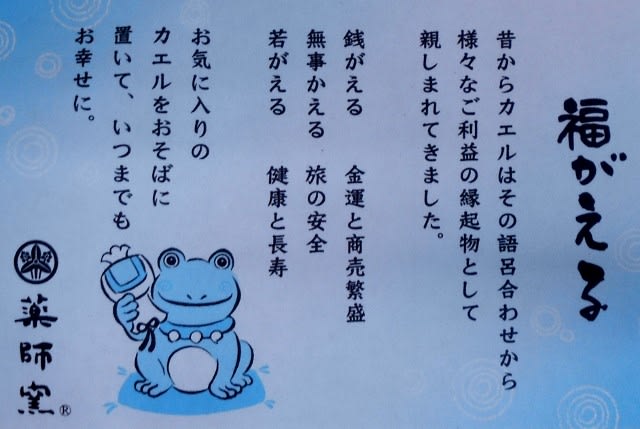 福がえる
昔からカエルはその語呂合わせから
様々なご利益の縁起物として
親しまれてきました。
銭がえる　金運と商売繁盛
無事かえる　旅の安全
若がえる　健康と長寿
お気に入りの
カエルをおそばに
置いて、いつまでも
お幸せに。
薬師窯®